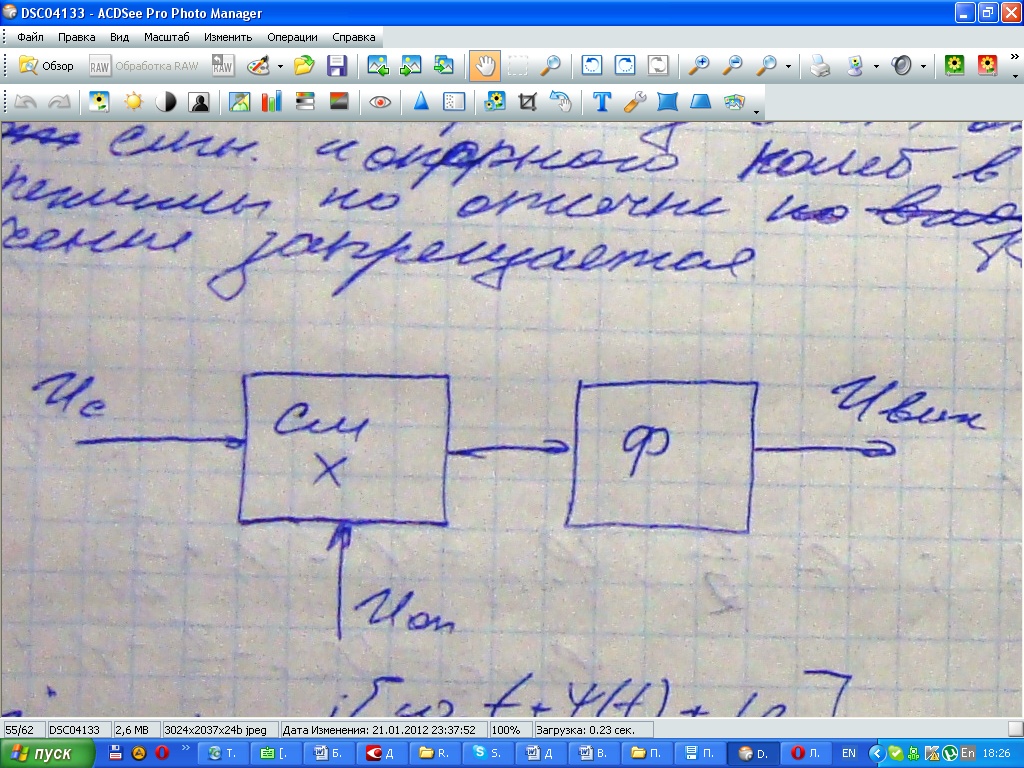 DSC04133 - ACDSee Pro Photo Manager
Файл Правка Вид Масштаб Изменить Операции Справка
Обзор RAW Обработка RAW RAW »
T
сигн. и опорного колеб в
но
запрещается
Uс
См
X
Ф
Uвых
Uоп
t + Ψ(t) +
55/62 DSC04133 2,6 MB 3024x2037x24b jpeg Дата Изменения: 21.01.2012 23:37:52 100% Загрузка: 0.23 сек.
пуск » Т. [. Б. Д R. S. Д В. П. П. D. Л. EN En 18:26